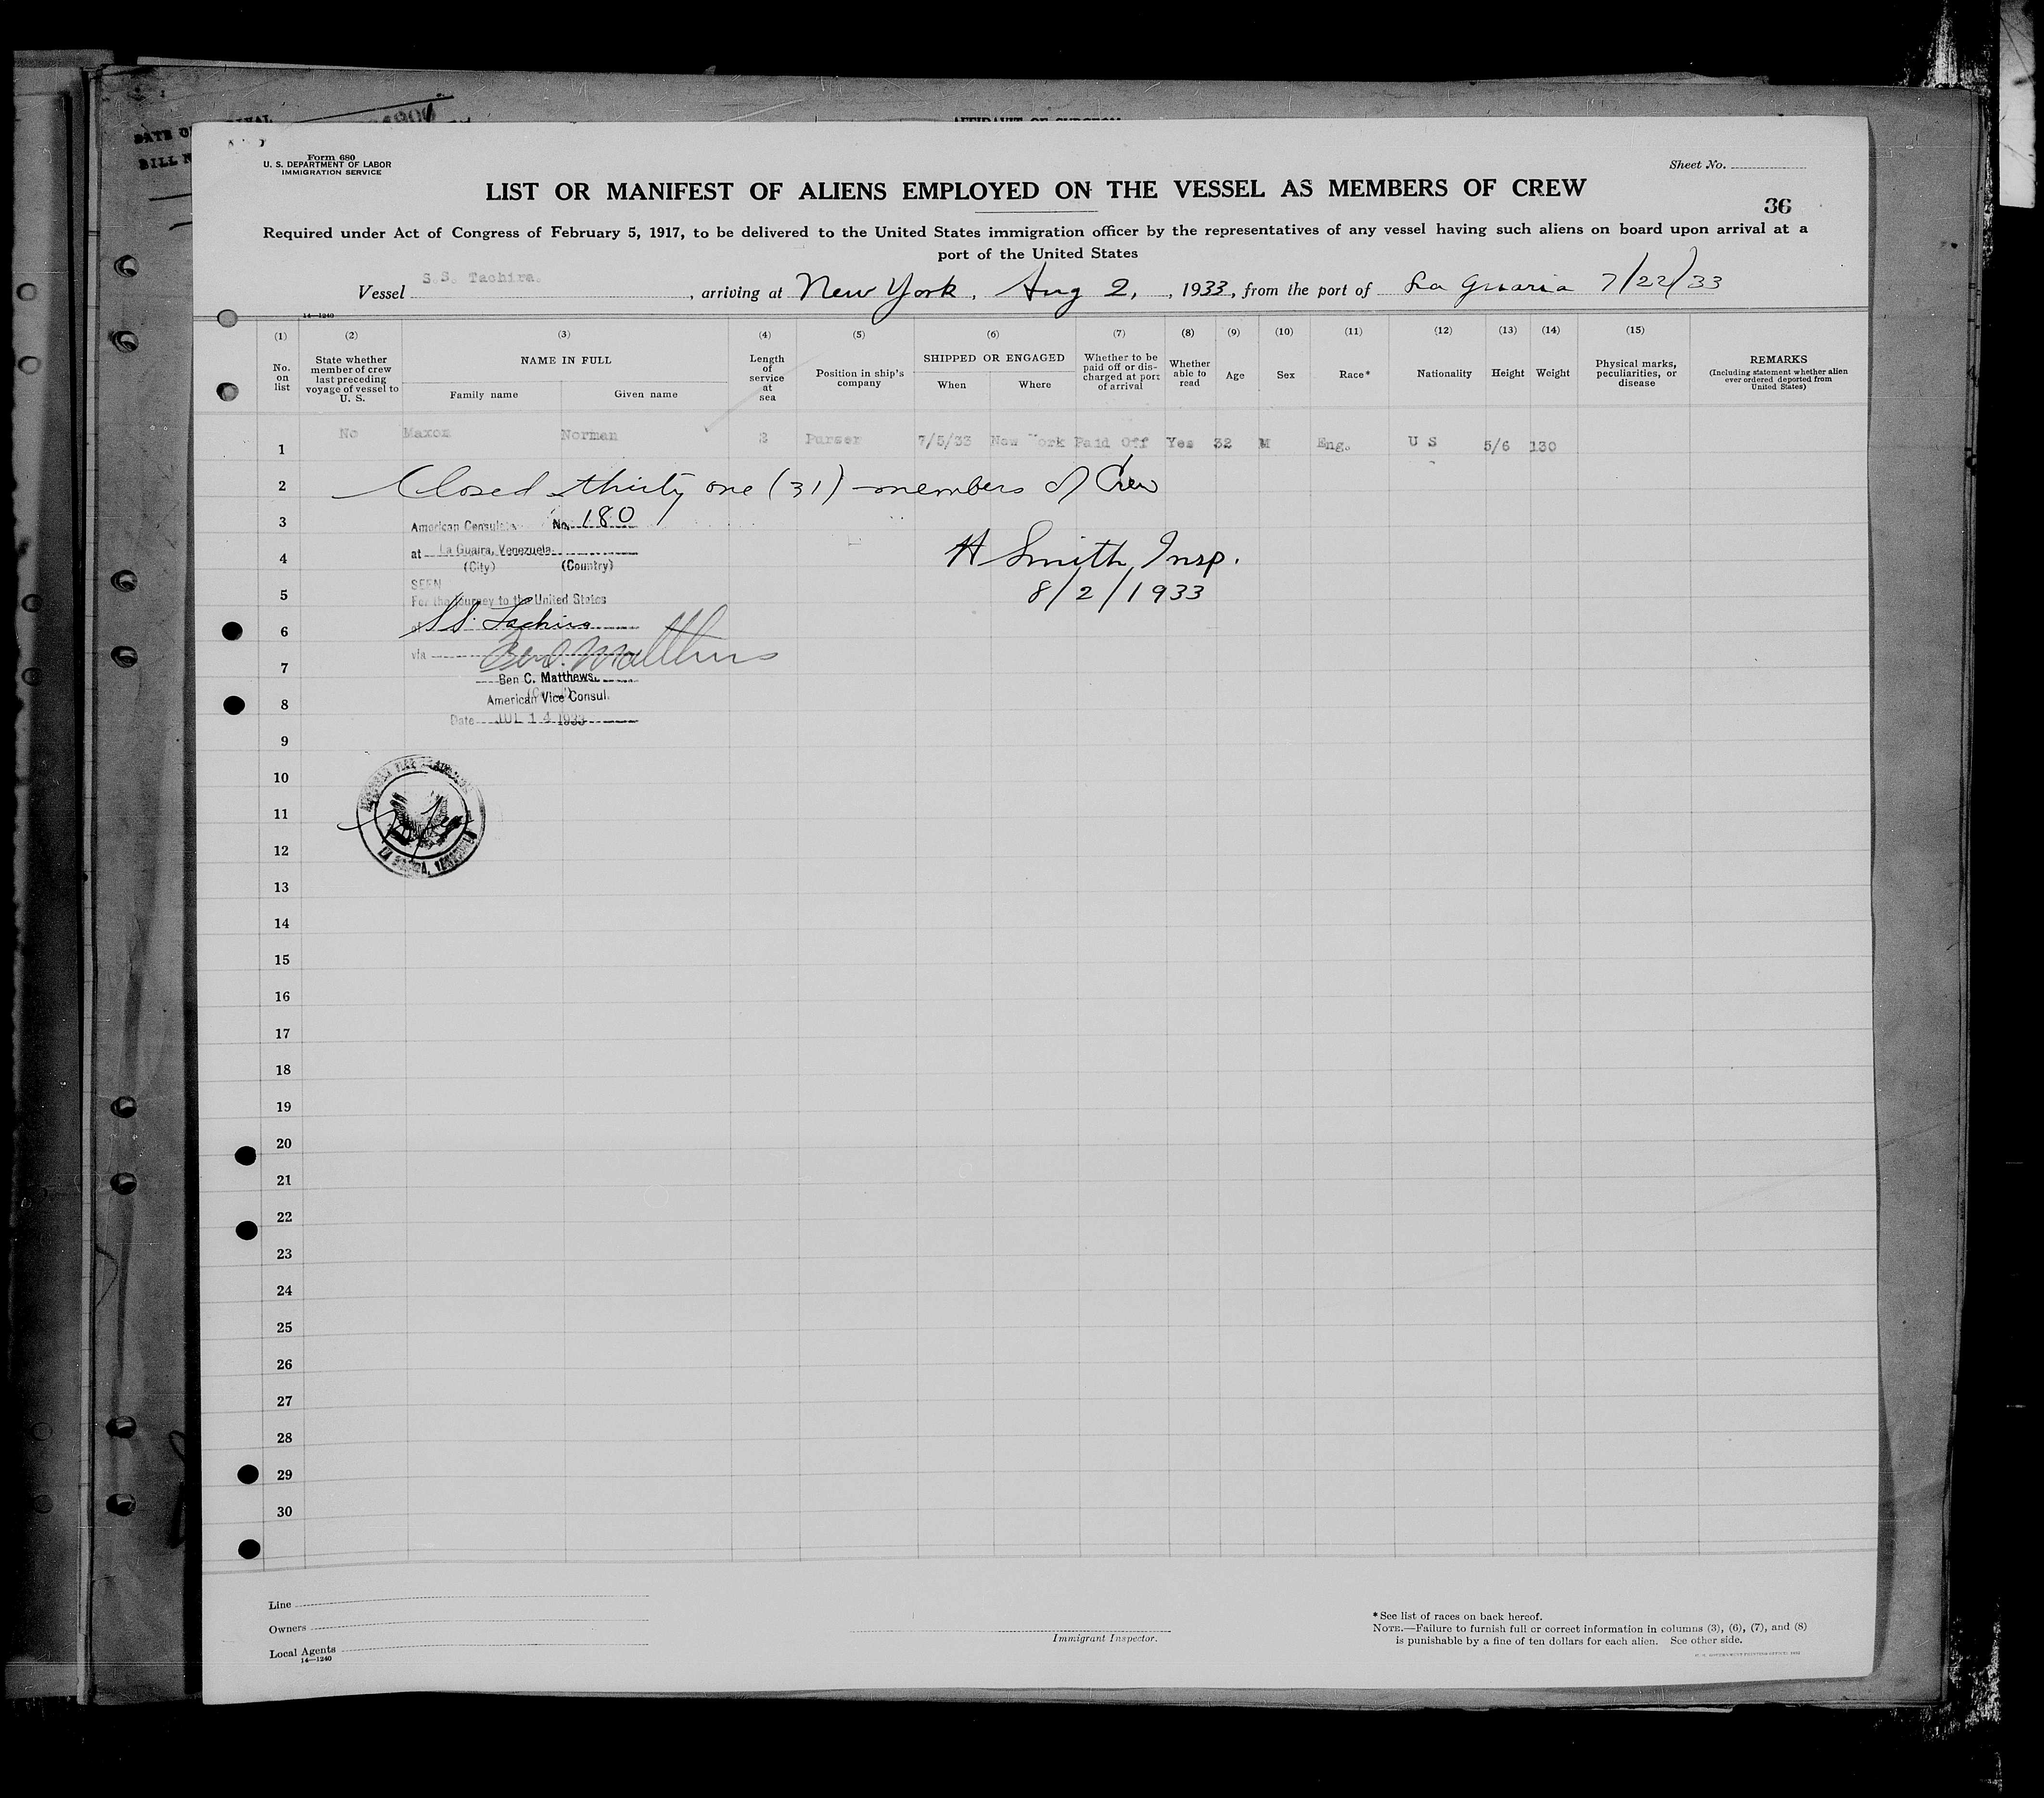 DATE OF
BILL
AFFIDAVIT OF SURGEON
Form 680
U. S. DEPARTMENT OF LABOR
IMMIGRATION SERVICE
Sheet No.
LIST OR MANIFEST OF ALIENS EMPLOYED ON THE VESSEL AS MEMBERS OF CREW
36
Required under Act of Congress of February 5, 1917, to be delivered to the United States immigration officer by the representatives of any vessel having such aliens on board upon arrival at a
port of the United States
Vessel S.S. Tachira. , arriving at New York, Aug 2, , 1933, from the port of La Guaria 7/22/33
14—1240
(1) (2) (3) (4) (5) (6) (7) (8) (9) (10) (11) (12) (13) (14) (15)
No. on list
State whether member of crew last preceding voyage of vessel to U. S.
NAME IN FULL
Family name
Given name
Length of service at sea
Position in ship's company
SHIPPED OR ENGAGED
When
Where
Whether to be paid off or discharged at port of arrival
Whether able to read
Age
Sex
Race*
Nationality
Height
Weight
Physical marks, peculiarities, or disease
REMARKS
(Including statement whether alien ever ordered deported from United States)
1 No Maxon Norman 2 Purser 7/5/33 New York Paid Off Yes 32 M Eng. U S 5/6 130
2 Closed thirty one (31) members of Crew
3 American Consulate No. 180
4 at La Guaira, Venezuela.
(City) (Country)
H Smith, Insp.
SEEN
5 For the journey to the United States
8/2/1933
6 of S.S. Tachira
7 via Ben C. Matthews
Ben C. Matthews.
8 American Vice Consul.
Date JUL 14 1933
9
10
11
12
LA GUAIRA, VENEZUELA
13
14
15
16
17
18
19
20
21
22
23
24
25
26
27
28
29
30
Line
Owners
Local Agents
14—1240
Immigrant Inspector.
*See list of races on back hereof.
NOTE.—Failure to furnish full or correct information in columns (3), (6), (7), and (8)
is punishable by a fine of ten dollars for each alien. See other side.